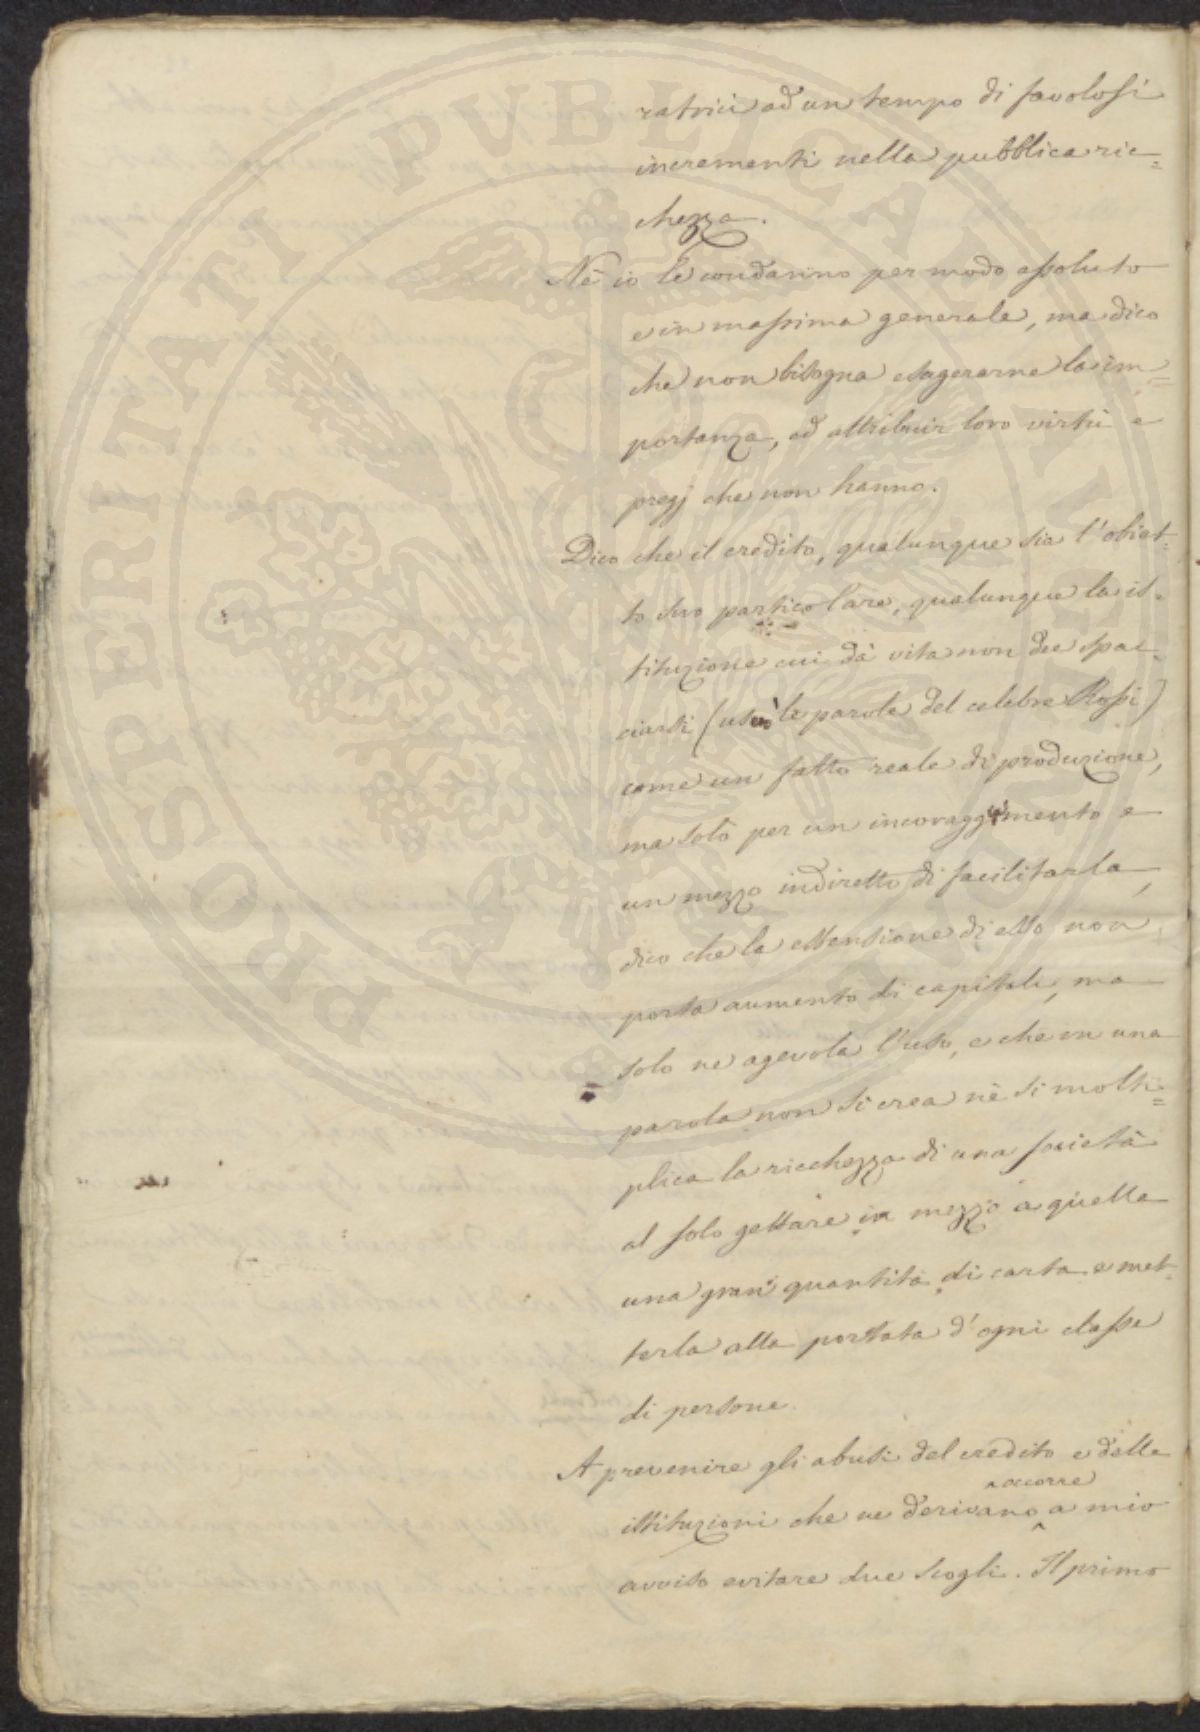 ratrici ad un tempo di favolosi
incrementi nella pubblica ric=
chezza.
Nè io le condanno per modo assoluto
e in massima generale, ma dico
che non bisogna esagerarne la im=
portanza, ed attribuir loro virtù e
pregj che non hanno.
Dico che il credito, qualunque sia l'obiet=
to suo particolare, qualunque la is=
tituzione cui dà vita non dee spac=
ciarsi (uso le parole del celebre Rossi)
come un fatto reale di produzione,
ma solo per un incoraggimento e
un mezzo indiretto di facilitarla,
dico che la estensione di esso non
porta aumento di capitale, ma
solo ne agevola l'uso, e che in una
parola non si crea nè si molti=
plica la ricchezza di una società
al solo gettare in mezzo a quella
una gran quantità di carta e met=
terla alla portata d'ogni classe
di persone.
A prevenire gli abusi del credito e delle
occorre
istituzioni che ne derivano a mio
avviso evitare due scogli. Il primo
PROSPERITATI PUBLICAE